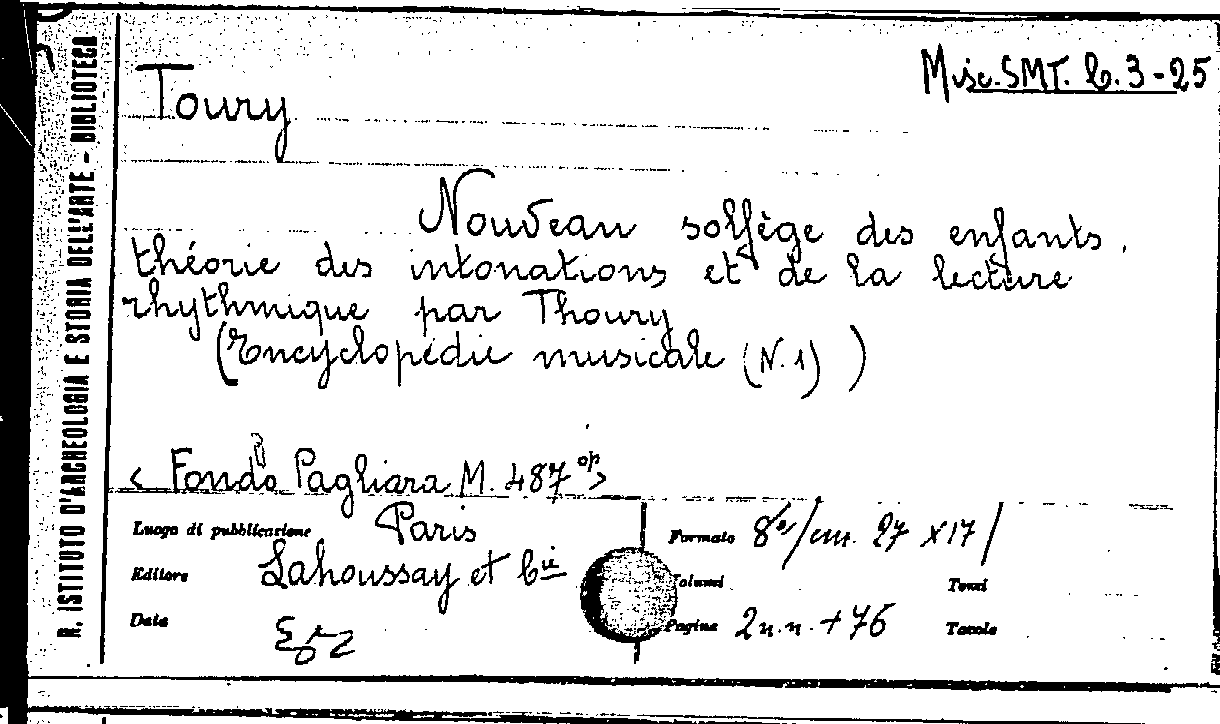 R. ISTITUTO D'ARCHEOLOGIA E STORIA DELL'ARTE - BIBLIOTECA
Misc. SMT. b. 3-25
Toury
Nouveau solfège des enfants,
théorie des intonations et de la lecture
rhythmique par Thoury
(Encyclopédie musicale (N. 1) )
< Fondo Pagliara M. 487 op>
Luogo di pubblicazione Paris
Formato 8° / cm. 27 x 17 /
Editore Lahoussay et Cie
Volumi
Tomi
Data
Pagine 2 n.n. + 76
Tavole